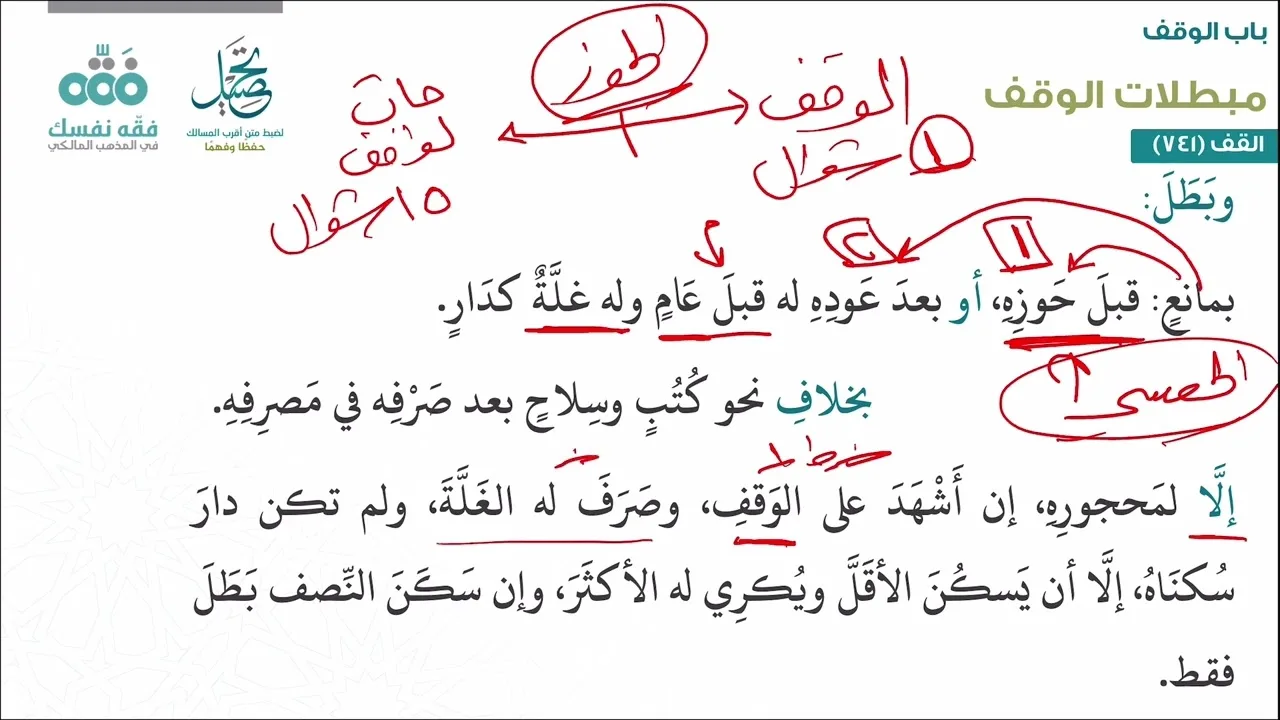 باب الوقف
مبطلات الوقف
القف (٧٤١)
تحصيل
لضبط متن أقرب المسالك
حفظا وفهما
فقه نفسك
في المذهب المالكي
الحوز
الوقف
١ شوال
مات
الواقف
١٥ شوال
وبَطَلَ:
١
٢
بمانعٍ: قبلَ حَوزِهِ، أو بعدَ عَودِهِ له قبلَ عَامٍ وله غلَّةٌ كدَارٍ.
بخلافِ نحو كُتُبٍ وسِلاحٍ بعد صَرْفِه في مَصرِفِهِ.
إلَّا لمَحجورِهِ، إن أَشْهَدَ على الوَقفِ، وصَرَفَ له الغَلَّةَ، ولم تكن دارَ
سُكنَاهُ، إلَّا أن يَسكُنَ الأقَلَّ ويُكرِي له الأكثَرَ، وإن سَكَنَ النِّصف بَطَلَ
فقط.